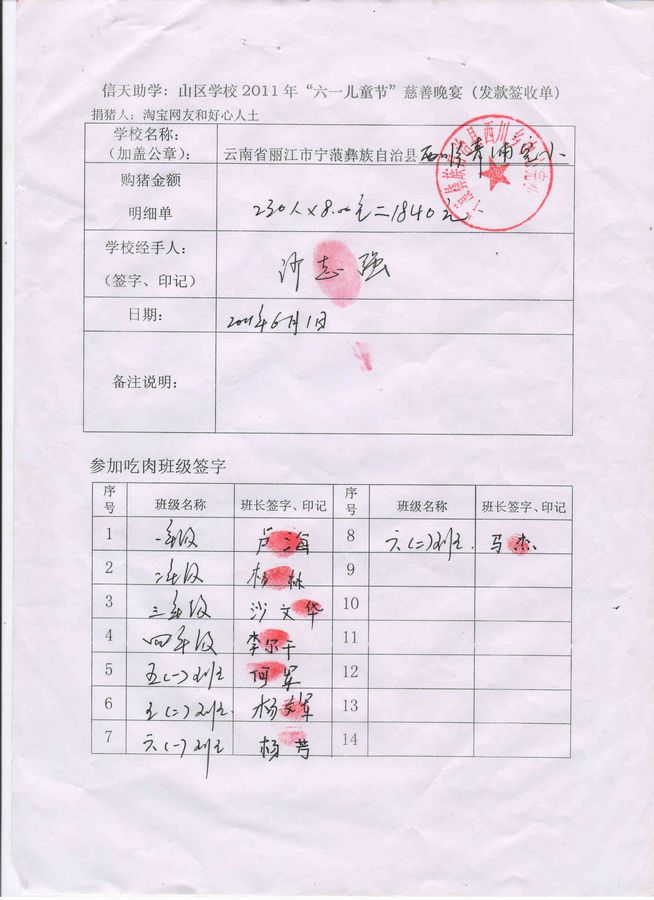 信天助学：山区学校2011年“六一儿童节”慈善晚宴（发款签收单）
捐猪人：淘宝网友和好心人士
学校名称：
（加盖公章）： 云南省丽江市宁蒗彝族自治县
购猪金额
明细单 230人×8.00元=1840元
学校经手人：
（签字、印记） 沙志强
日期： 2011年6月1日
备注说明：
参加吃肉班级签字
序号 班级名称 班长签字、印记 序号 班级名称 班长签字、印记
1 一年级 卢海 8 六（二）班 马杰
2 二年级 杨林 9
3 三年级 沙文华 10
4 四年级 李尔干 11
5 五（一）班 阿军 12
6 五（二）班 杨文军 13
7 六（一）班 杨芳 14